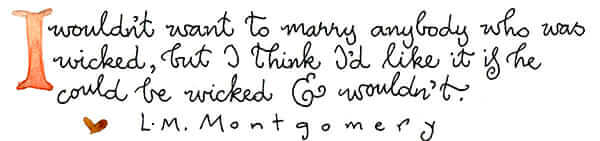 I wouldn't want to marry anybody who was
wicked, but I think I'd like it if he
could be wicked & wouldn't.
L. M. Montgomery